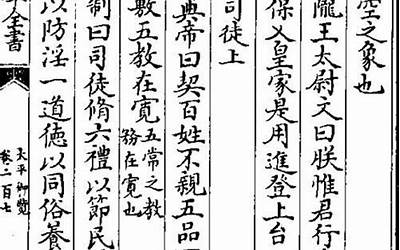 空之象也
隴王太尉文曰朕惟君行
保乂皇家是用進登上台
司徒上
典帝曰契百姓不親五品
敷五教在寛五常之教
務在寛也
制曰司徒脩六禮以節民
以防淫一道徳以同俗養
全書
太平御覽
卷二百七